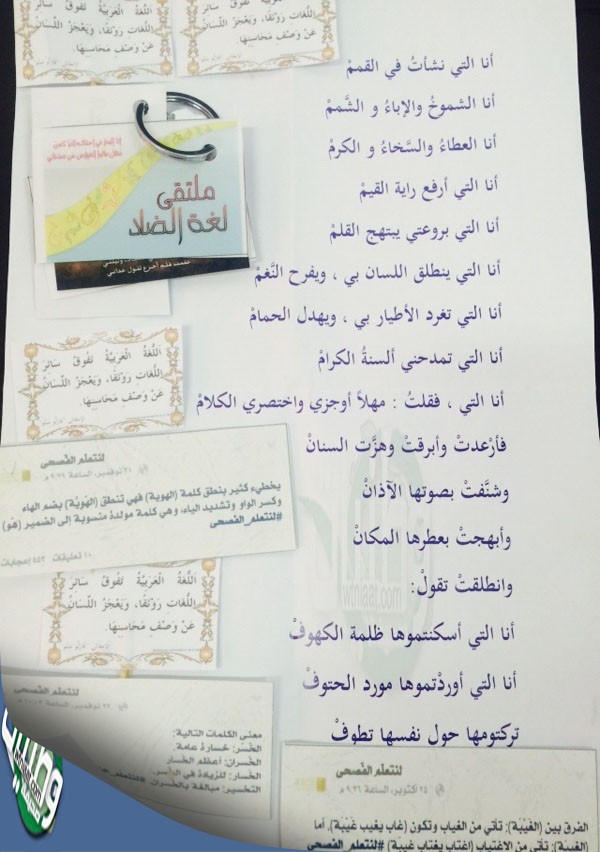 اللُّغَةُ الْعَرَبِيَّةُ تَفُوقُ سَائِرَ
اللُّغَاتِ رَوْنَقًا، وَيَعْجَزُ اللِّسَانُ
عَنْ وَصْفِ مَحَاسِنِهَا.
اللُّغَاتِ رَوْنَقًا، وَيَعْجَزُ اللِّسَانُ
عَنْ وَصْفِ مَحَاسِنِهَا.
ملتقى
لغة الضاد
أنا التي نشأتُ في القممْ
أنا الشموخُ والإباءُ و الشَّممْ
أنا العطاءُ والسَّخاءُ و الكرمْ
أنا التي أرفع راية القيمْ
أنا التي بروعتي يبتهج القلمْ
أنا التي ينطلق اللسان بي ، ويفرح النَّغمْ
أنا التي تغرد الأطيار بي ، ويهدل الحمامْ
أنا التي تمدحني ألسنةُ الكرامْ
أنا التي ، فقلتُ : مهلاً أوجزي واختصري الكلامْ
فأرْعدتْ وأبرقتْ وهزَّت السنانْ
وشنَّفتْ بصوتها الآذانْ
وأبهجتْ بعطرها المكانْ
وانطلقتْ تقولْ:
أنا التي أسكنتموها ظلمة الكهوفْ
أنا التي أوردْتموها مورد الحتوفْ
تركتومها حول نفسها تطوفْ
اللُّغَةُ الْعَرَبِيَّةُ تَفُوقُ سَائِرَ
اللُّغَاتِ رَوْنَقًا، وَيَعْجَزُ اللِّسَانُ
عَنْ وَصْفِ مَحَاسِنِهَا.
لنتعلم الفصحى
٢١ نوفمبر، الساعة
يخطيء كثير بنطق كلمة (الهوية) فهي تنطق (الهُوِيَّة) بضم الهاء
وكسر الواو وتشديد الياء، وهي كلمة مولدة منسوبة إلى الضمير (هُوَ)
#لنتعلم_الفصحى
١٠ تعليقات ٤٥٣ إعجابات
اللُّغَةُ الْعَرَبِيَّةُ تَفُوقُ سَائِرَ
اللُّغَاتِ رَوْنَقًا، وَيَعْجَزُ اللِّسَانُ
عَنْ وَصْفِ مَحَاسِنِهَا.
لنتعلم الفصحى
نوفمبر، الساعة
معنى الكلمات التالية:
الخُسْر: خسارة عامة.
الخُسران: أعظم الخسار
الخسار: للزيادة في الخُسر.
التخسير: مبالغة بالخُسران.
لنتعلم الفصحى
٢٤ أكتوبر، الساعة ٩:٢٦ م
الفرق بين (الغَيْبَة): تأتي من الغياب وتكون (غاب يغيب غَيْبَة)، أما
(الغِيبَة): تأتي من الاغتياب (اغتاب يغتاب غِيبَة) #لنتعلم_الفصحى